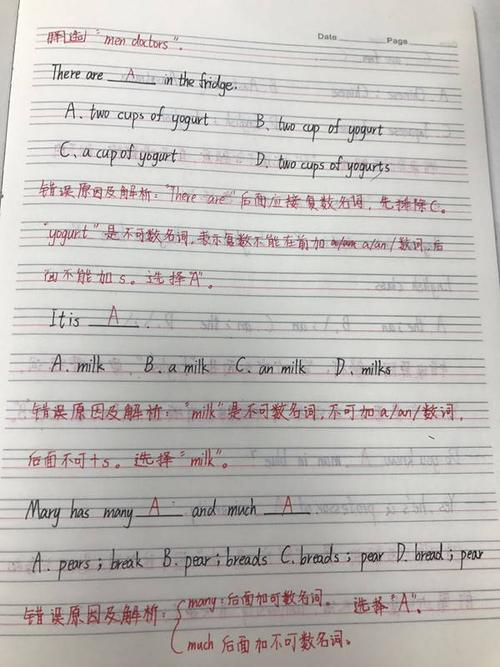 所以选择"men doctors".
Date Page
There are A in the fridge.
A. two cups of yogurt B. two cup of yogurt
C. a cup of yogurt D. two cups of yogurts
错误原因及解析:"There are"后面应接复数名词,先排除C。
"yogurt"是不可数名词,表示复数不能在前加 a/an/数词,后
面不能加s。选择"A"。
It is A .
A. milk B. a milk C. an milk D. milks
错误原因及解析:"milk"是不可数名词,不可加a/an/数词,
后面不可+s。选择"milk"。
Mary has many A and much A
A. pears ; break B. pear ; breads C. breads ; pear D. bread ; pear
错误原因及解析: many:后面加可数名词。 选择"A"。
much 后面加不可数名词。